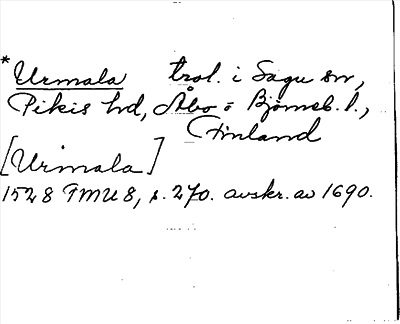 *Urmala trol. i Sagu sn,
Pikis hd, Åbo o Björneb. l.,
Finland
[Urmala]
1528 FMU 8, s. 270. avskr. av 1690.